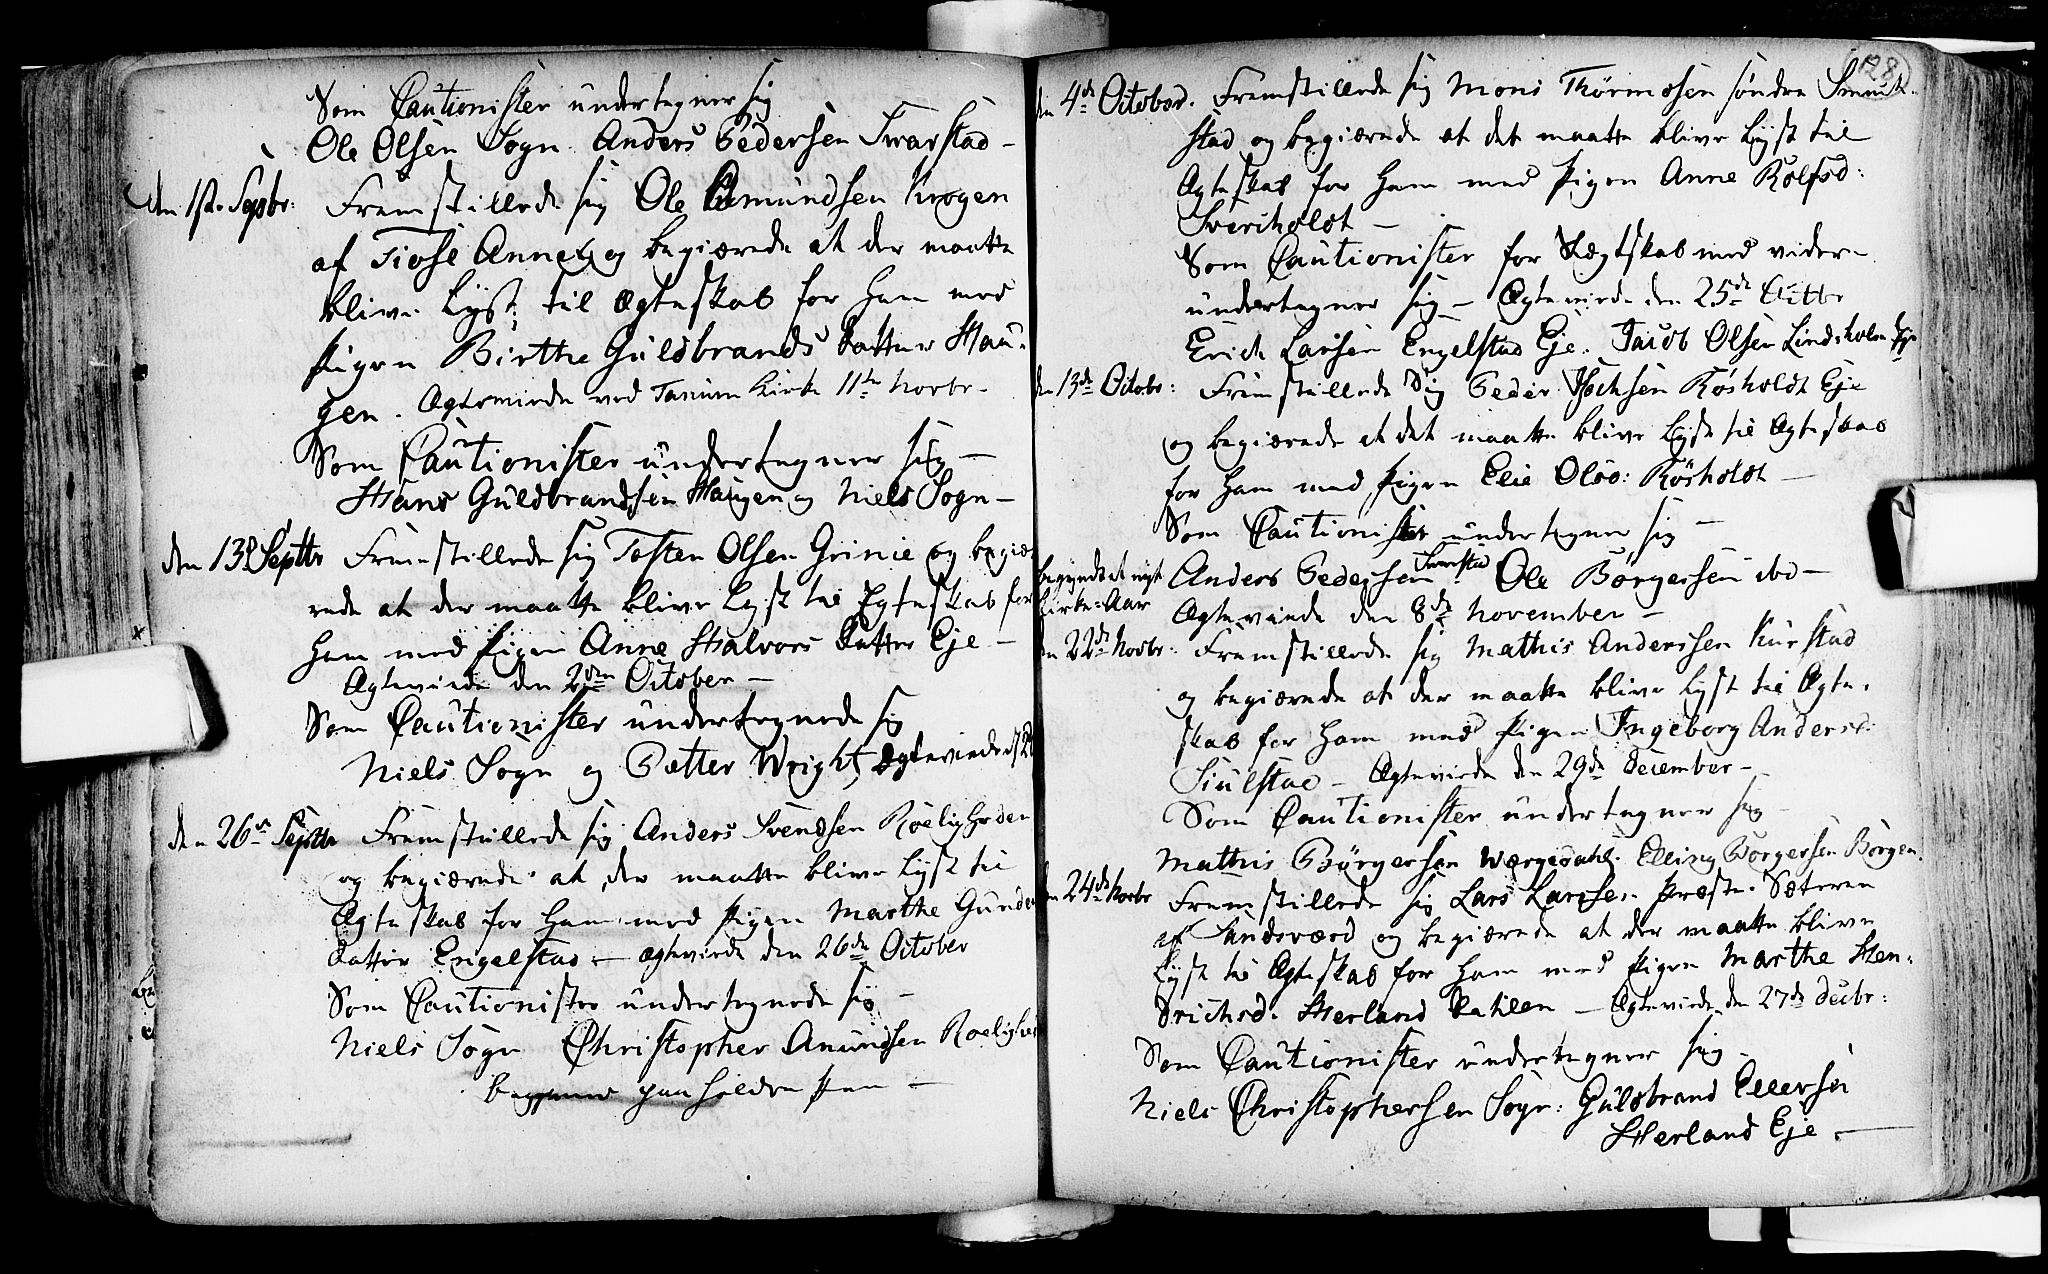 Som Cautionister undertegner sig
Ole Olsen Sogn Anders Pedersen Svarstad -
den 1ste Septbr: Fremstillede sig Ole Amundsen Krogen
af Tiose Annex og begiærede at der maatte
blive lyst til Ægteskab for ham med
Pigen Birthe Guldbrands datter Hau-
gen. Agteviede ved Tanum Kirke 11te Novbr -
Som Cautionister undertegner sig -
Hans Guldbrandsen Haugen og Niels Sogn -
den 13de Septbr Fremstillede sig Tosten Olsen Grinie og begiæ-
rede at der maatte blive lyst til Egteskab for
ham med Pigen Anne Halvors datter Eje -
Agteviede den 2den October -
Som Cautionister undertegnede sig
Niels Sogn og Petter Wright, Ægteviede d
den 26de Septbr Fremstillede sig Anders Svendsen Roeligheden
og begiærede at der maatte blive lyst til
Ægteskab for ham med Pigen Marthe Gunder
datter Engelstad - Ægteviede den 26de October
Som Cautionister undertegnede sig -
Niels Sogn Christopher Amundsen Roelighed
begge med paaholden Pen -
128
den 4de October. Fremstillede sig Mons Thormosen søndre
stad og begiærede at det maatte blive lyst til
Ægteskab for ham med Pigen Anne Rolfsd:
Sveriholdt -
Som Cautionister for Ægtskab med videre
undertegner sig - Ægteviede den 25de Octbr
Erich Larsen Engelstad Eje. Jacob Olsen Lindsholm Eje
den 13de Octobr: Fremstillede Sig Peder Isachsen Røsholdt Eje
og begiærede at det maatte blive lyst til Ægteskab
for ham med Pigen Elie Olsd: Røsholdt -
Som Cautionister undertegner sig -
Anders Pedersen Svarstad Ole Børgersen ibd -
Ægteviede den 8de November -
begyndt et nyt
Kirke-Aar
den 22de Novbr: Fremstillede sig Mathis Anderssen Kiørstad
og begiærede at der maatte blive lyst til Ægte-
skab for ham med Pigen Ingeborg Andersd:
Siulstad - Ægteviede den 29de December -
Som Cautionister undertegner sig -
Mathis Børgersen Værgedahl. Elling Børgersen Børgen.
den 24de Novbr Fremstillede sig Lars Larssen Præste-Sæteren
af Sandsværd og begiærede at der maatte blive
lyst til Ægteskab for ham med Pigen Marthe Hen-
drichsd: Herland - Ægteviede den 27de Decbr:
Som Cautionister undertegner sig -
Niels Christophersen Sogn: Guldbrand Ellevsen
Herland Eje. -